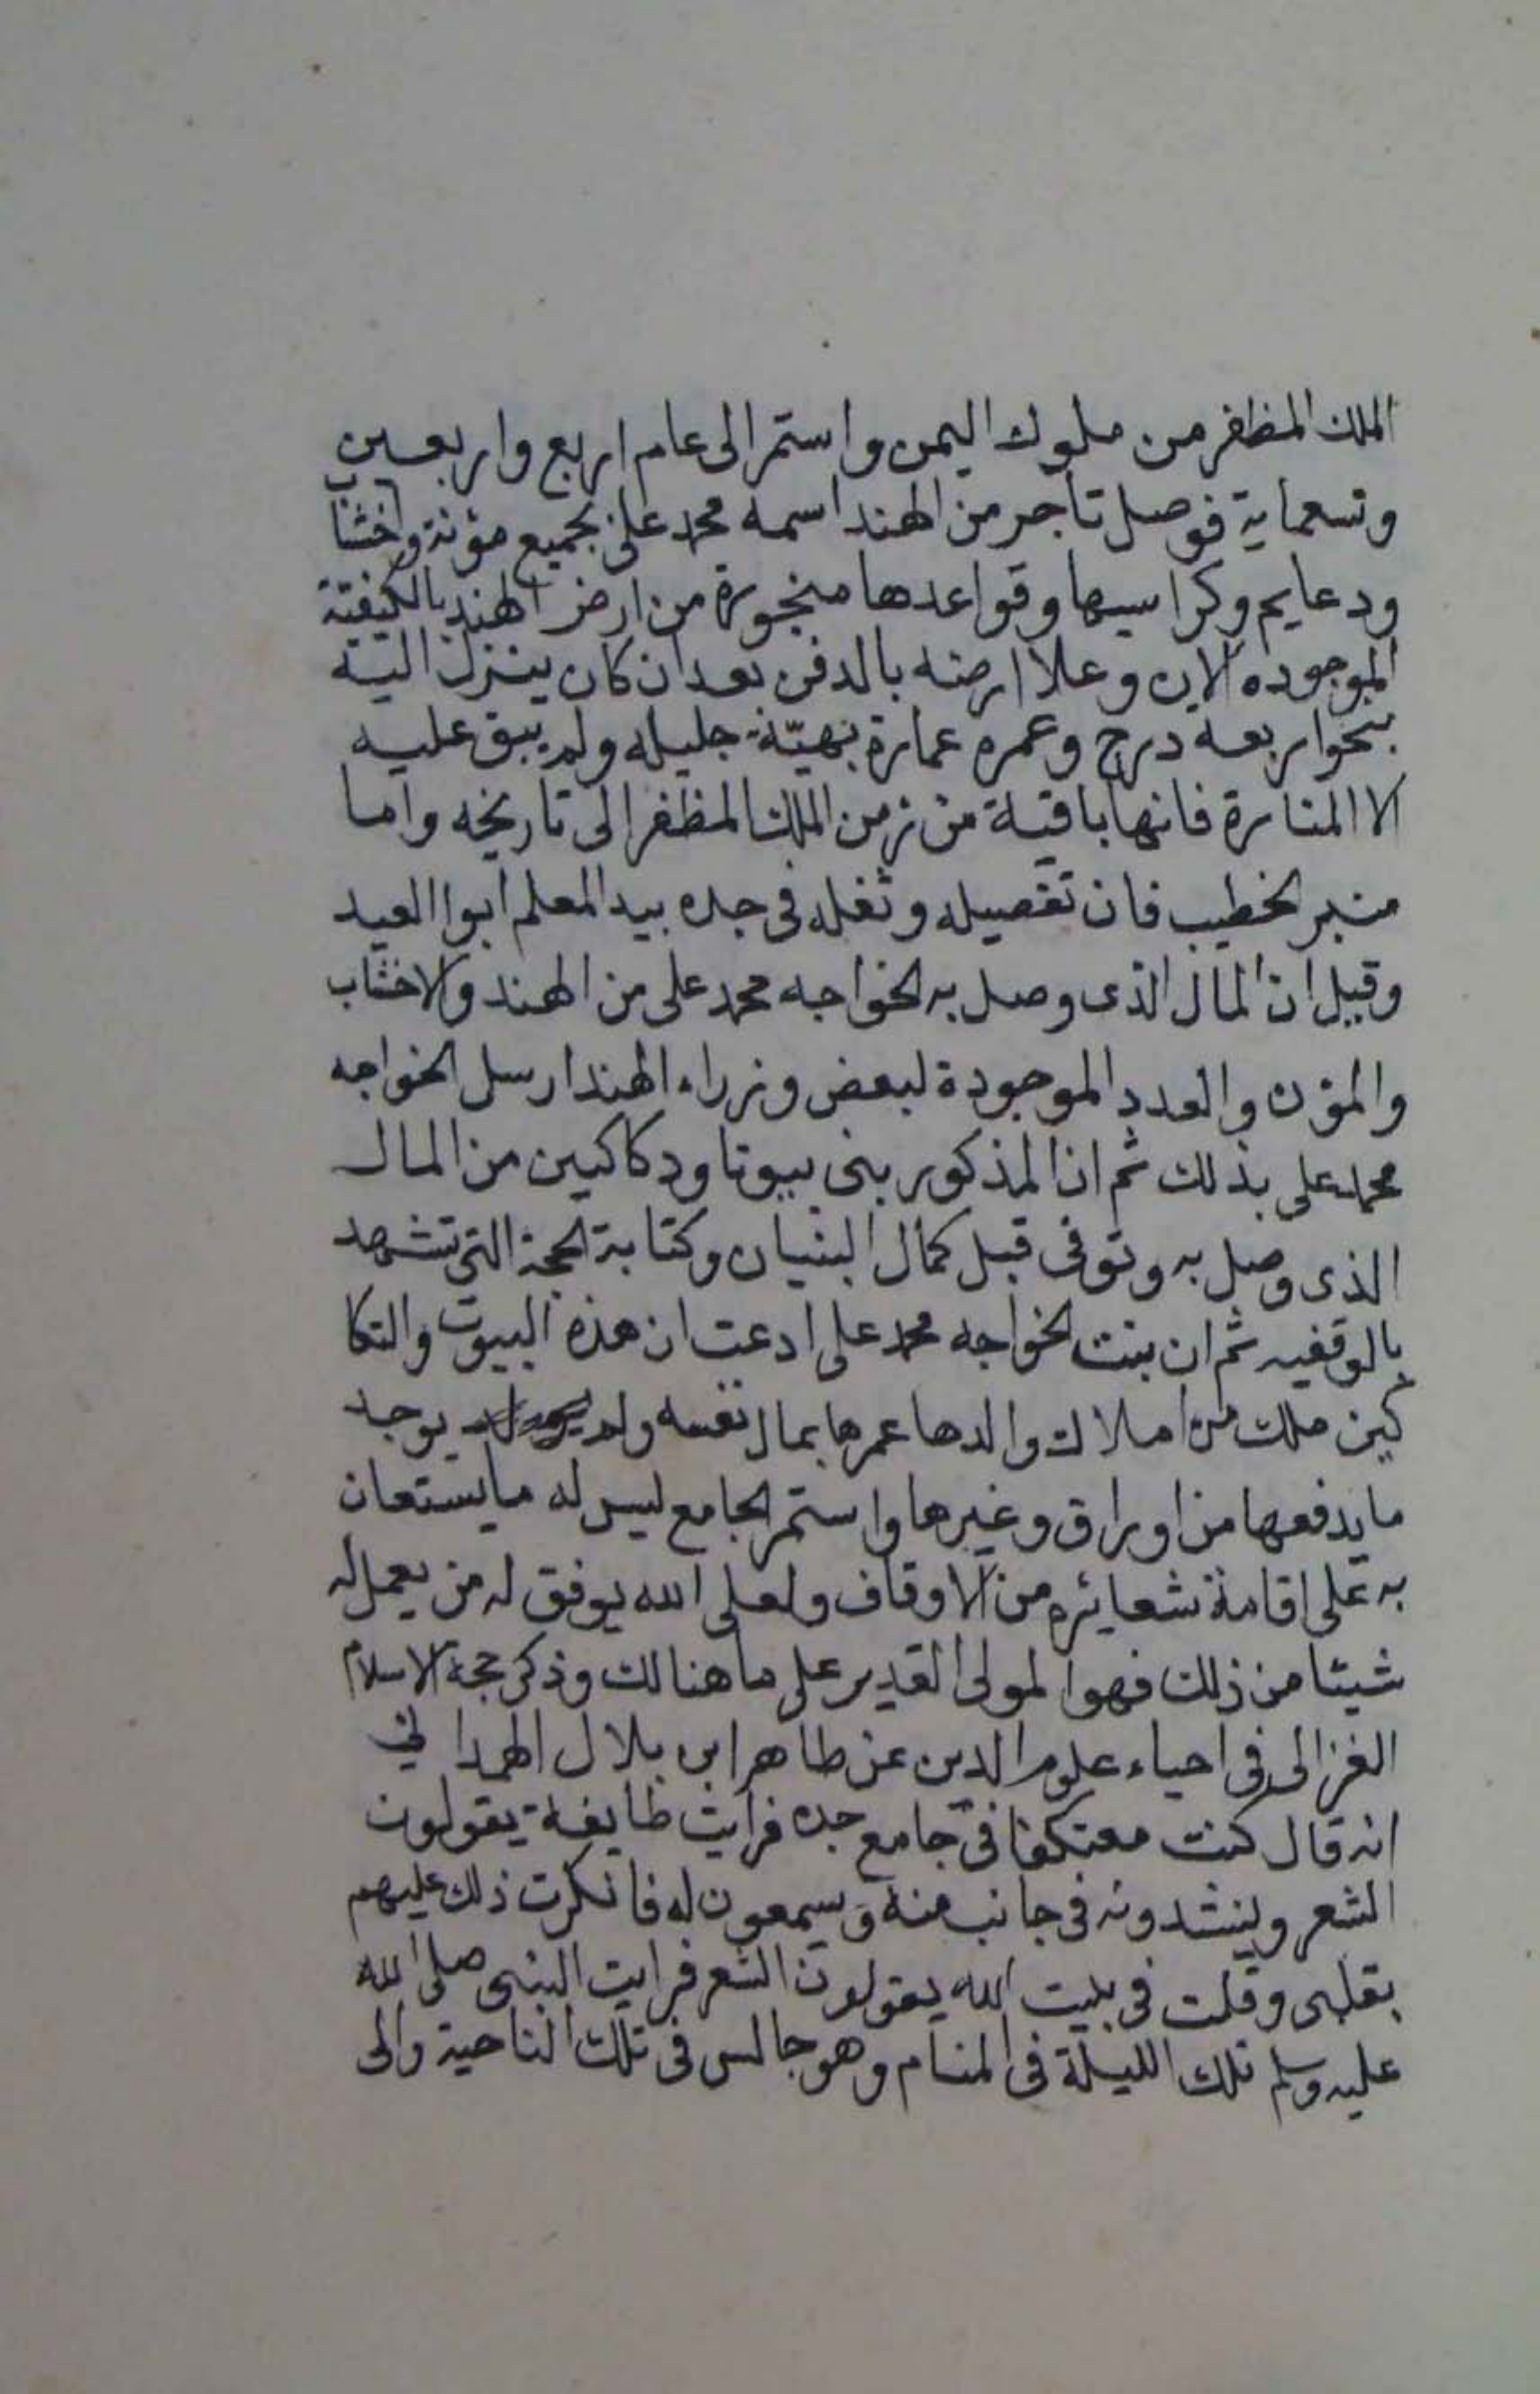 الملك المظفر من ملوك اليمن واستمر الى عام اربع واربعين
وتسعماية فوصل تاجر من الهند اسمه محمد على بجميع مؤنة واخشاب
ودعايم وكراسيها وقواعدها منجورة من ارض الهند بالكيفية
الموجوده الان وعلا ارضه بالدفن بعد ان كان ينزل اليه
بنحو اربعة درج وعمره عمارة بهيّة جليله ولم يبق عليه
الا المنارة فانها باقية من زمن الملك المظفر الى تاريخه واما
منبر الخطيب فان تفصيله وثغله فى جده بيد المعلم ابوا العيد
وقيل ان المال الذى وصل به الخواجه محمد على من الهند والاخشاب
والمؤن والعدد الموجودة لبعض وزراء الهند ارسل الخواجه
محمد على بذلك ثم ان المذكور بنى بيوتا ودكاكين من المال
الذى وصل به وتوفى قبل كمال البنيان وكتابة الحجة التى تشهد
بالوقفيه ثم ان بنت الخواجه محمد على ادعت ان هذه البيوت والتكا
كين ملك من املاك والدها عمرها بمال نفسه ولم يوجد
ما يدفعها من اوراق وغيرها واستمر الجامع ليس له ما يستعان
به على اقامة شعايره من الاوقاف ولعلى الله يوفق له من يعمل له
شيئا من ذلك فهو المولى القدير على ما هنالك وذكر حجة الاسلام
الغزالى فى احياء علوم الدين عن طاهر ابن بلال الهمدانى
انه قال كنت معتكفا فى جامع جده فرايت طايفة يقولون
الشعر وينشدونه فى جانب منه ويسمعون له فانكرت ذلك عليهم
بقلبى وقلت فى بيت الله يقولون الشعر فرايت النبى صلى الله
عليه وسلم تلك الليلة فى المنام وهو جالس فى تلك الناحية والى